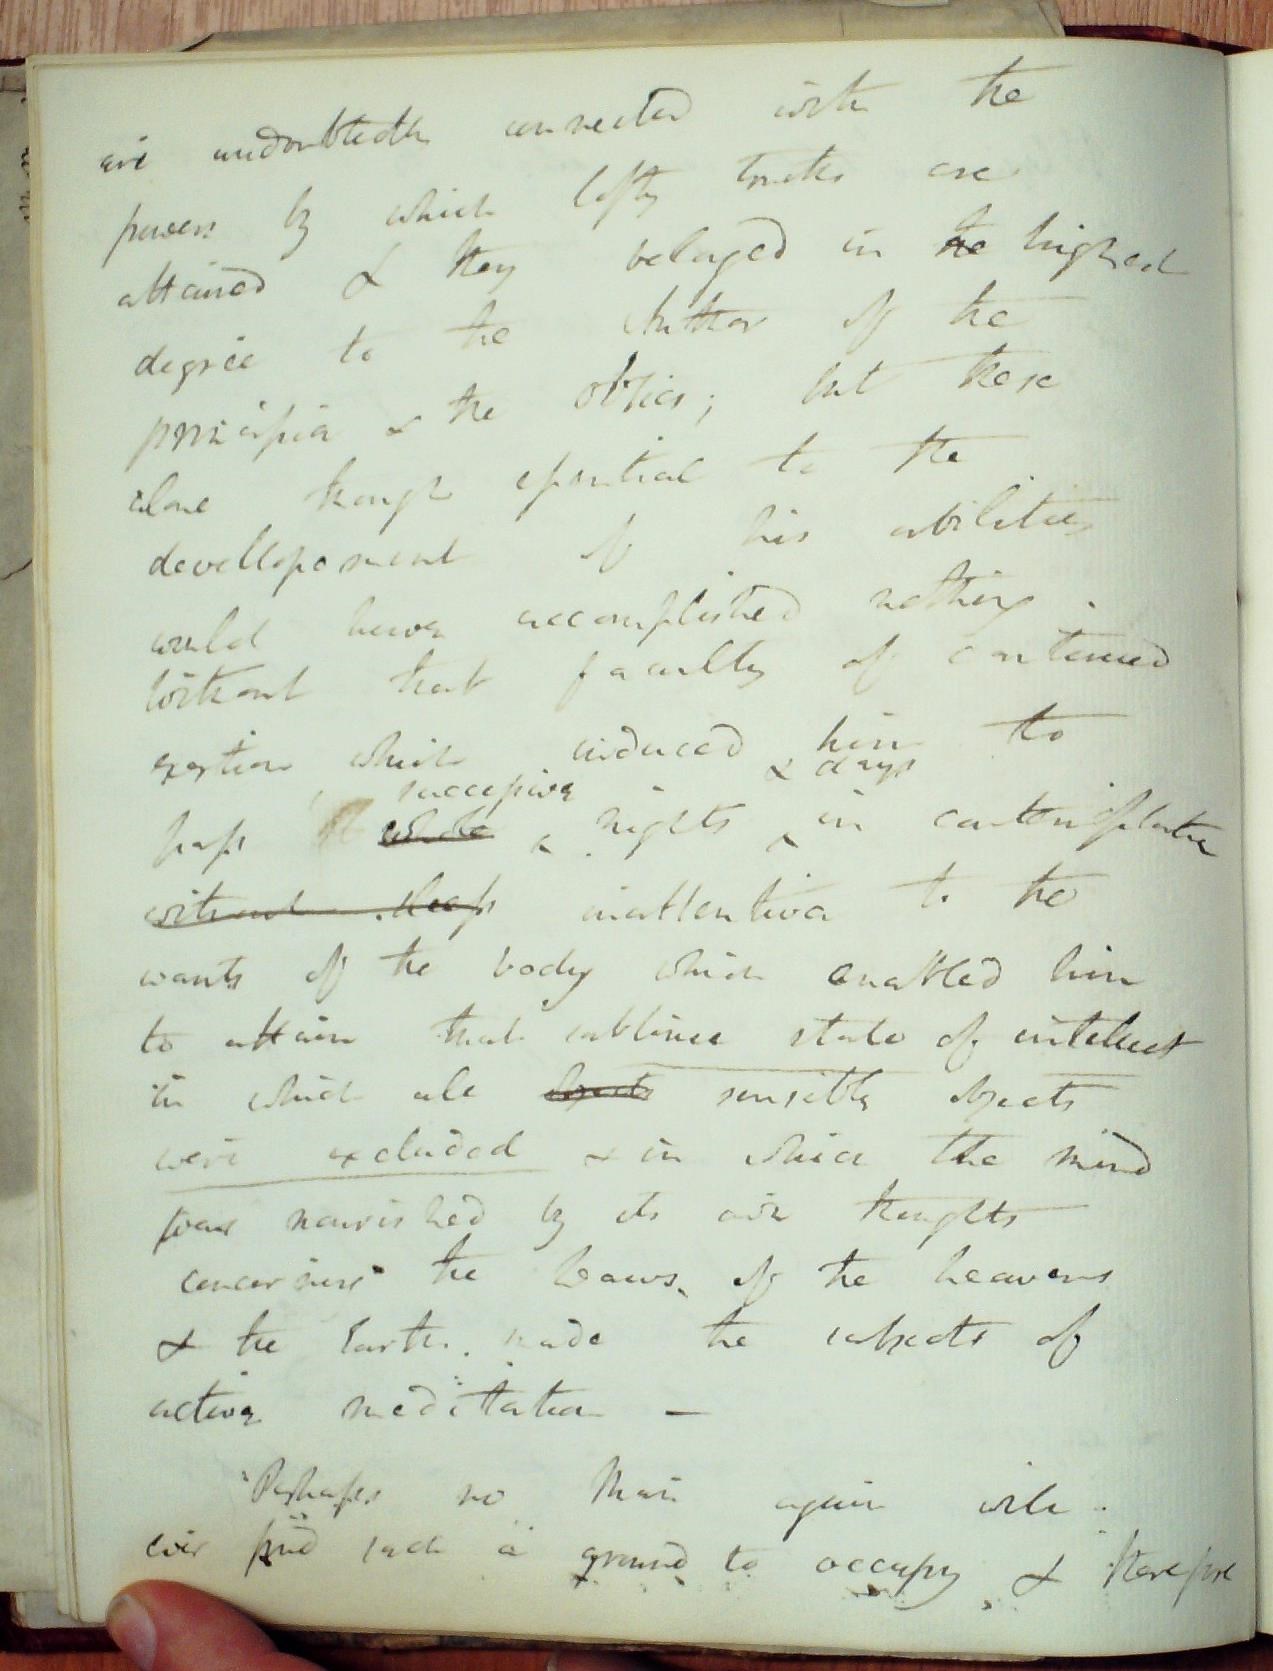 are undoubtedly connected with the
powers by which lofty truths are
attained & they belonged in the highest
degree to the Author of the
principia & the Optics; but these
alone though essential to the
developement of his abilities
would have accomplished nothing
without that faculty of continued
exertion which induced him to
pass whole successive nights & days in contemplation
without sleep inattentive to the
wants of the body which enabled him
to attain that sublime state of intellect
in which all objects sensible objects
were excluded & in which the mind
was nourished by its own thoughts
concerning the Laws of the heavens
& the Earth made the subjects of
active meditation —
Perhaps no Man again will
ever find such a ground to occupy & therefore